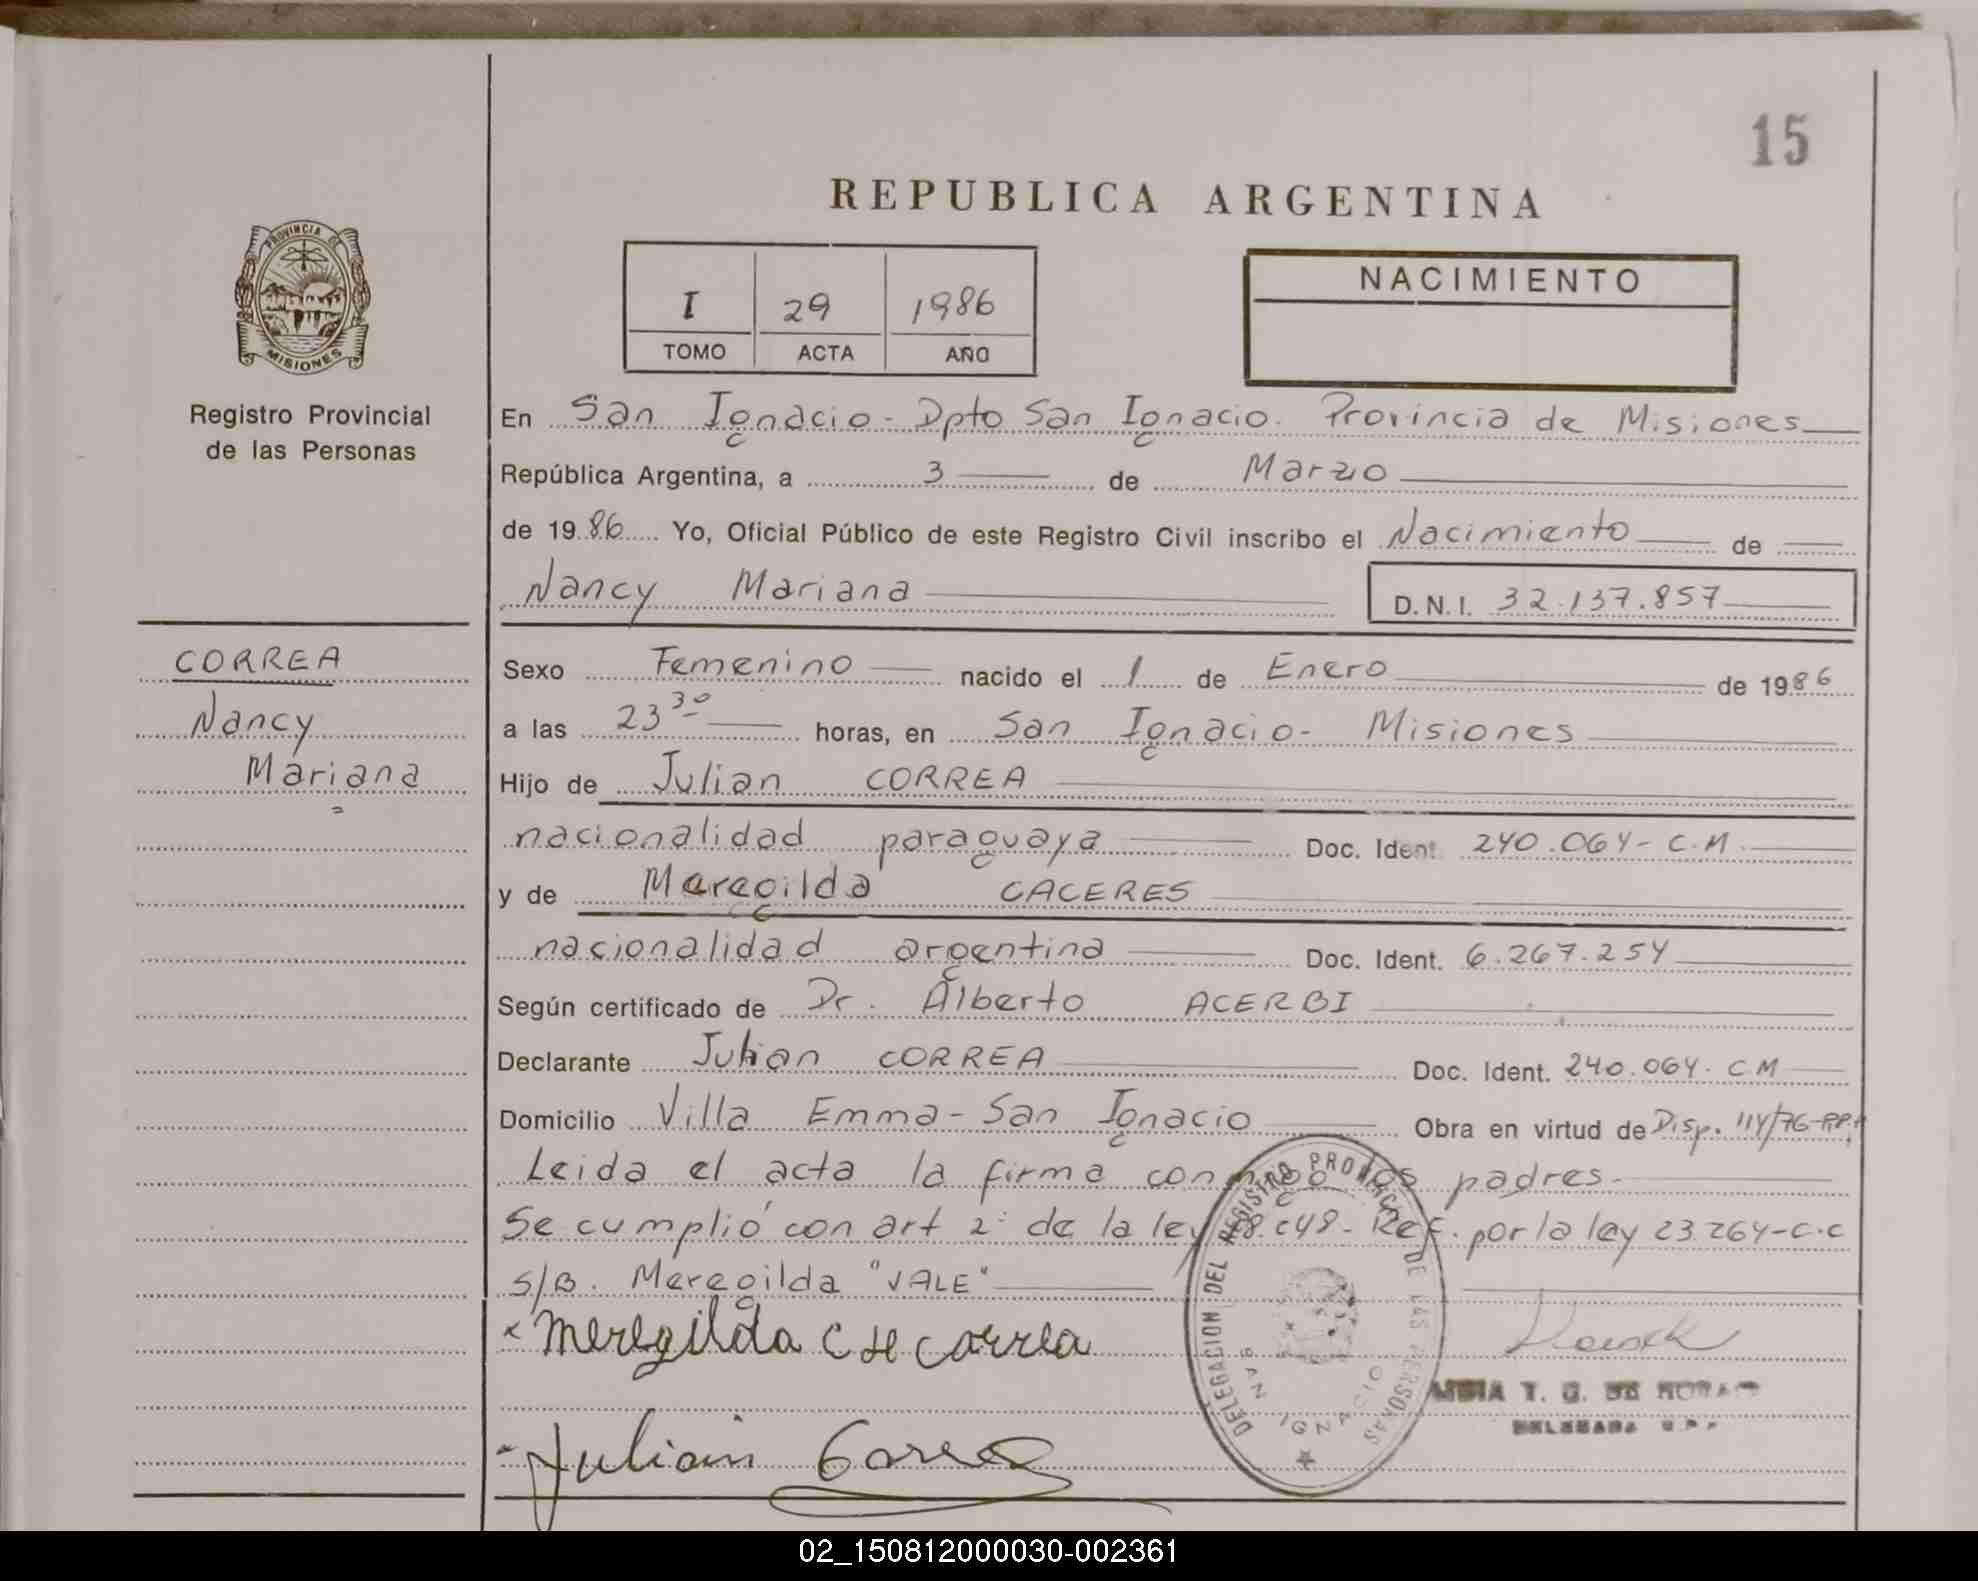 15
REPUBLICA ARGENTINA
PROVINCIA DE
MISIONES
Registro Provincial
de las Personas
I 29 1986
TOMO ACTA AÑO
NACIMIENTO
En San Ignacio - Dpto San Ignacio. Provincia de Misiones
República Argentina, a 3 de Marzo
de 1986 Yo, Oficial Público de este Registro Civil inscribo el Nacimiento de
Nancy Mariana D.N.I. 32.137.857
CORREA
Nancy
Mariana
Sexo Femenino nacido el 1 de Enero de 1986
a las 23 30 horas, en San Ignacio - Misiones
Hijo de Julian CORREA
nacionalidad paraguaya Doc. Ident. 240.064 - C.M
y de Meregilda CACERES
nacionalidad argentina Doc. Ident. 6.267.254
Según certificado de Dr. Alberto ACERBI
Declarante Julian CORREA Doc. Ident. 240.064. CM
Domicilio Villa Emma - San Ignacio Obra en virtud de Disp. 114/76-
Leida el acta la firma conmigo los padres.
Se cumplió con art 2: de la ley Ref. por la ley 23.264-C.C
S/B. Meregilda "VALE"
x Meregilda C de Correa
Julian Correa
DELEGACION DEL REGISTRO PROVINCIAL DE LAS PERSONAS
SAN IGNACIO
T. G. DE
DELEGADA
02_150812000030-002361